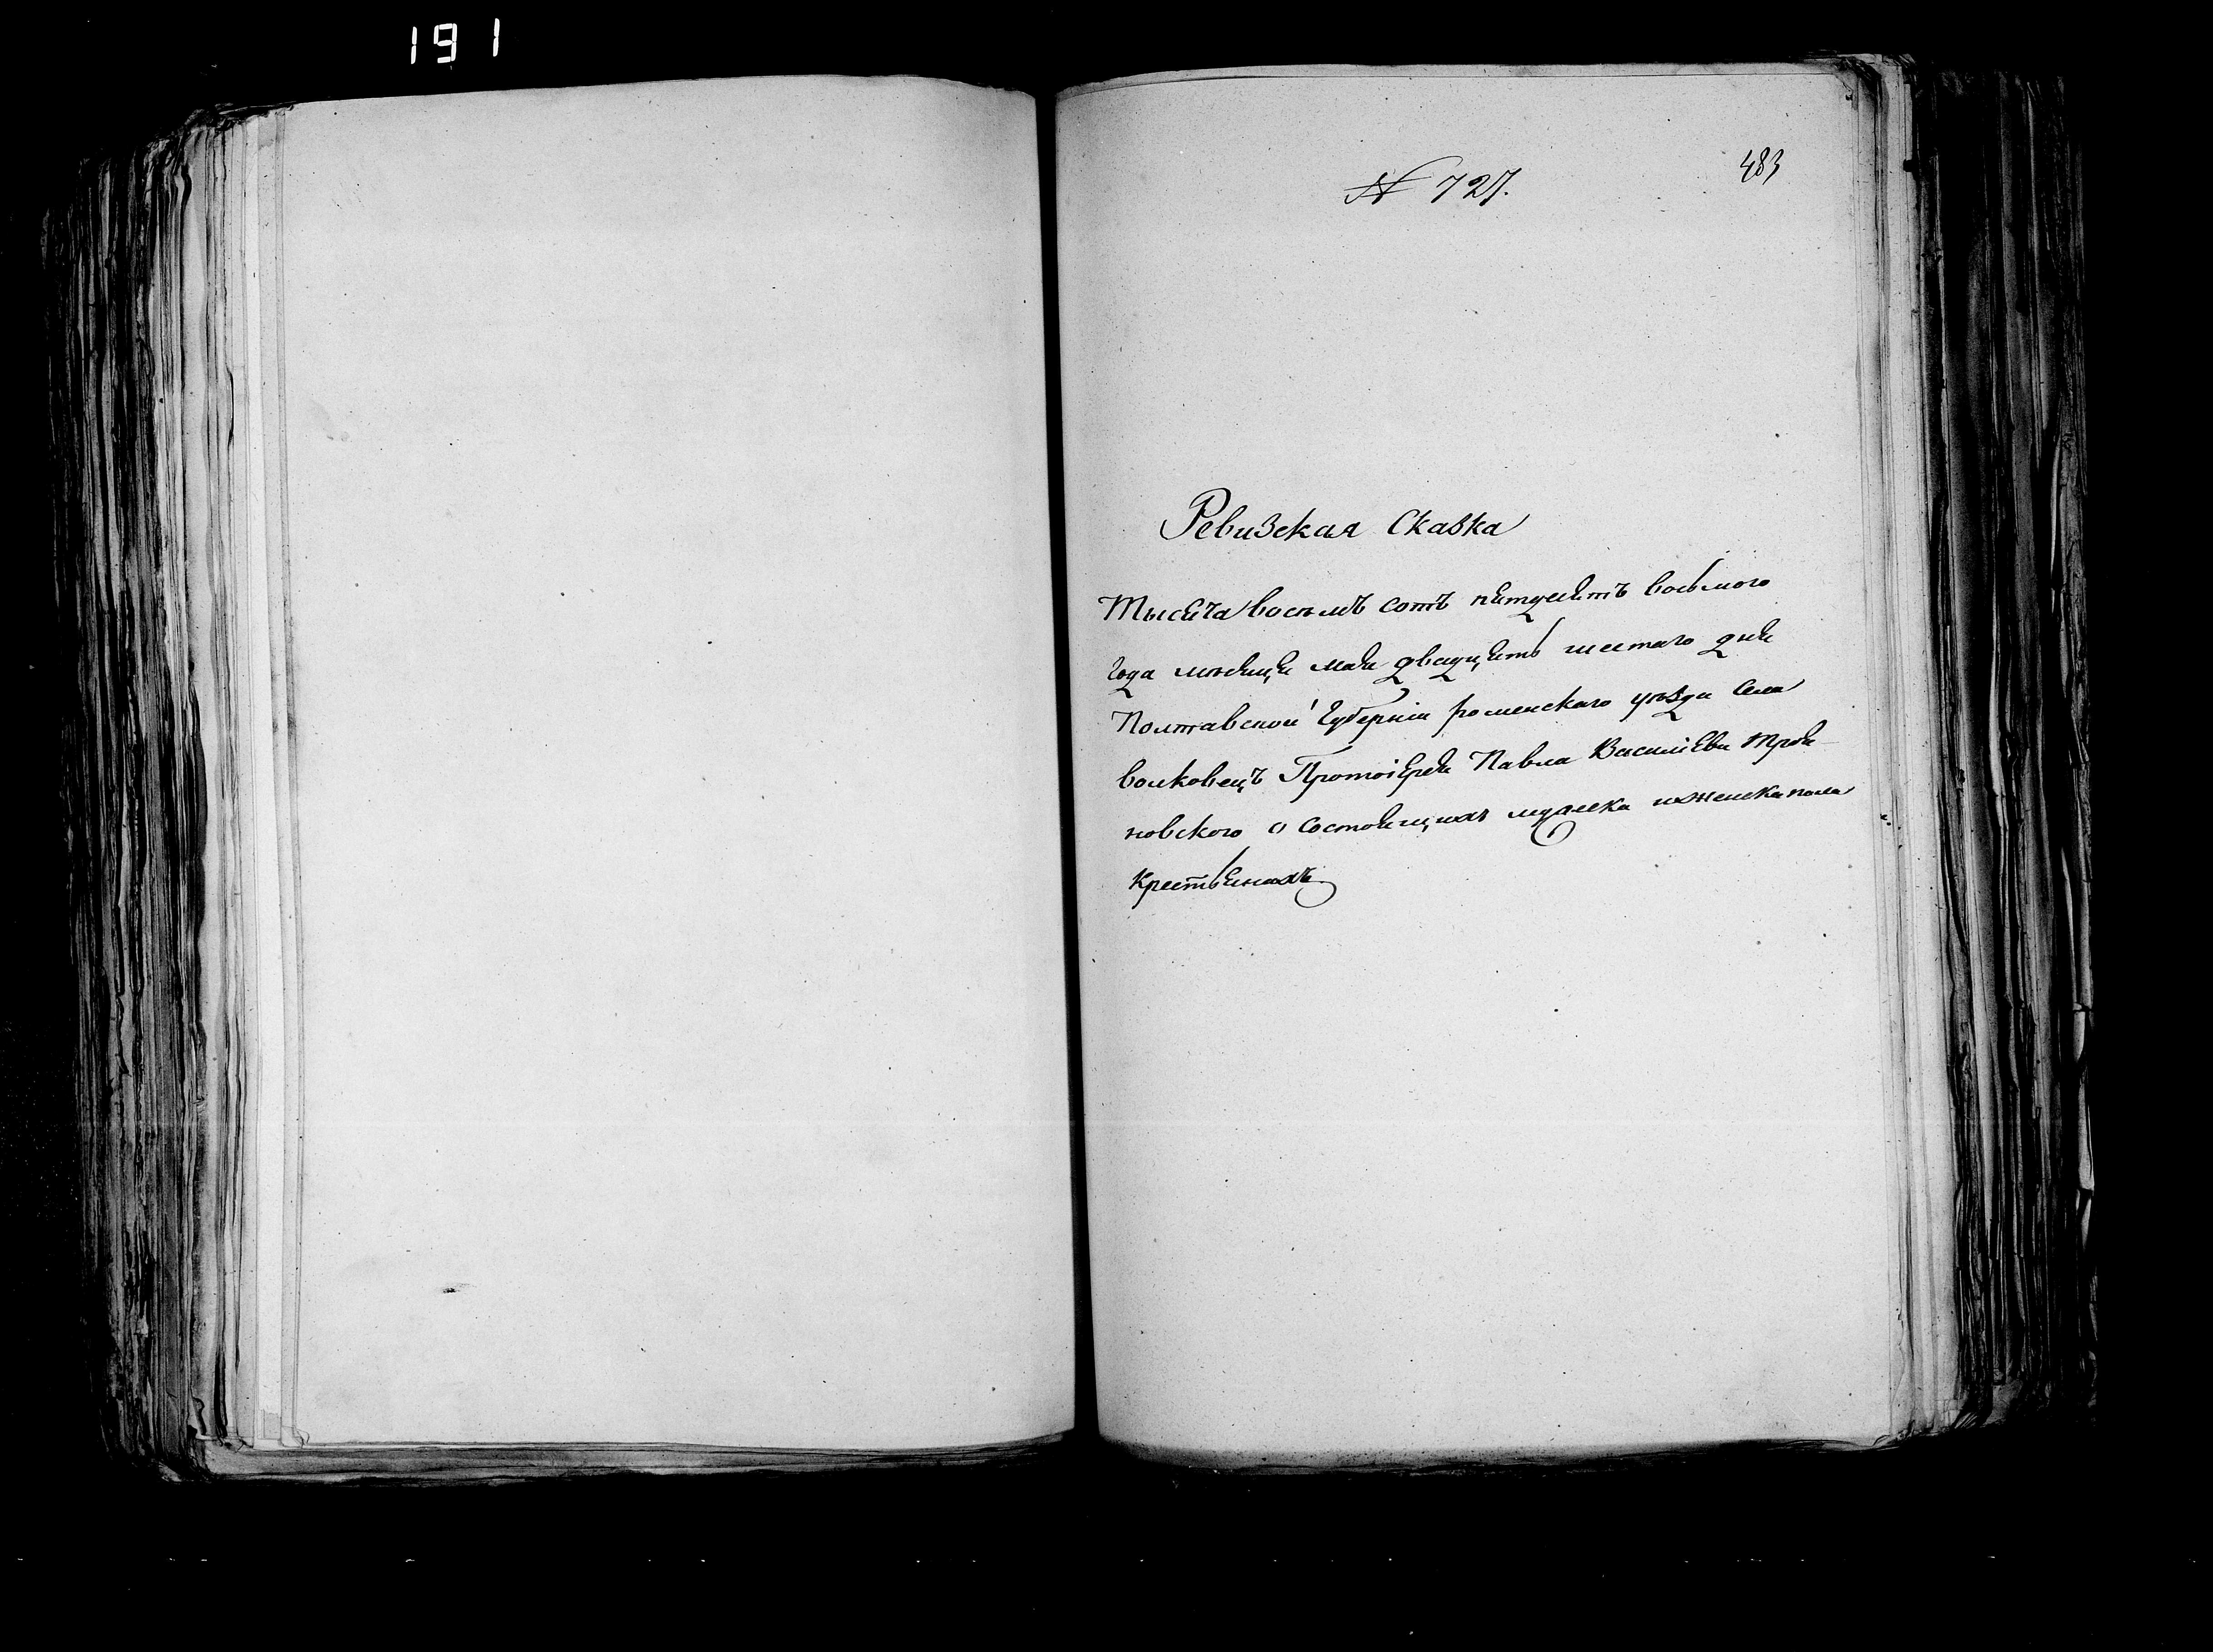 191
483
№ 727.
Ревизская Сказка
Тысяча восемъ сотъ пятдесятъ восьмого
года мѣсяца мая двадцять шестаго дня
Полтавской Губерніи роменскаго уѣзда села
волковецъ Протоіерея Павла Василіева Троя-
новского о состоящихъ мужеска и женска пола
крестьянахъ